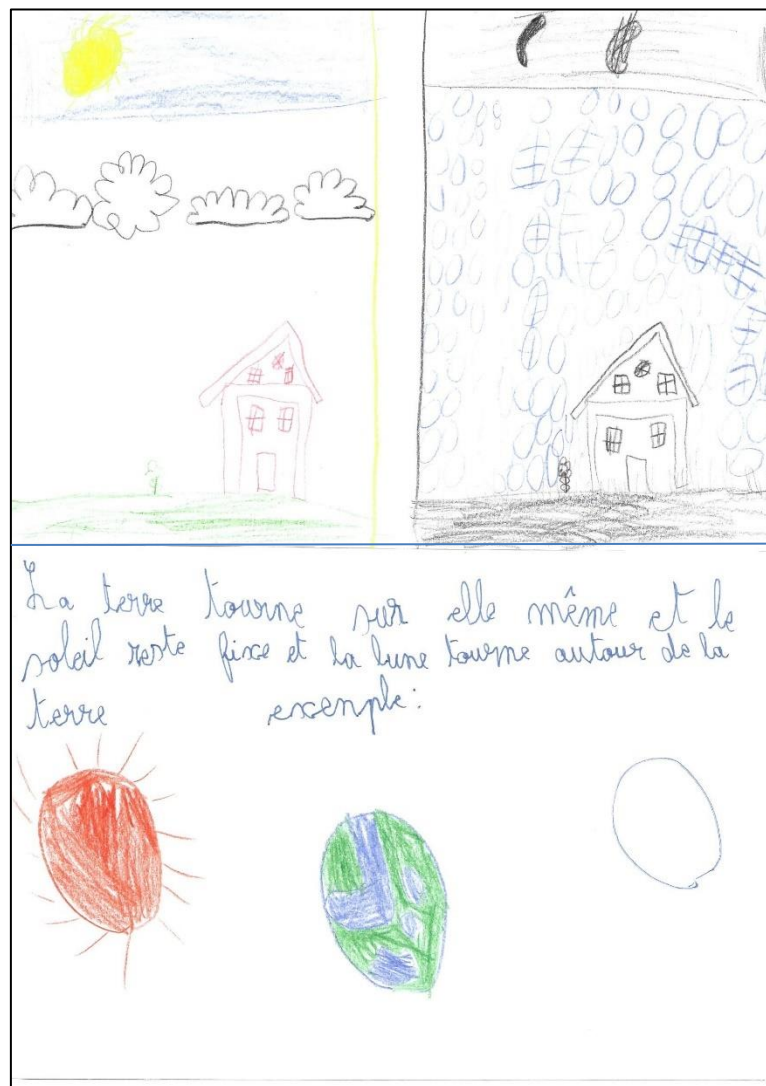 La terre tourne sur elle même et le
soleil reste fixe et la lune tourne autour de la
terre exenple: